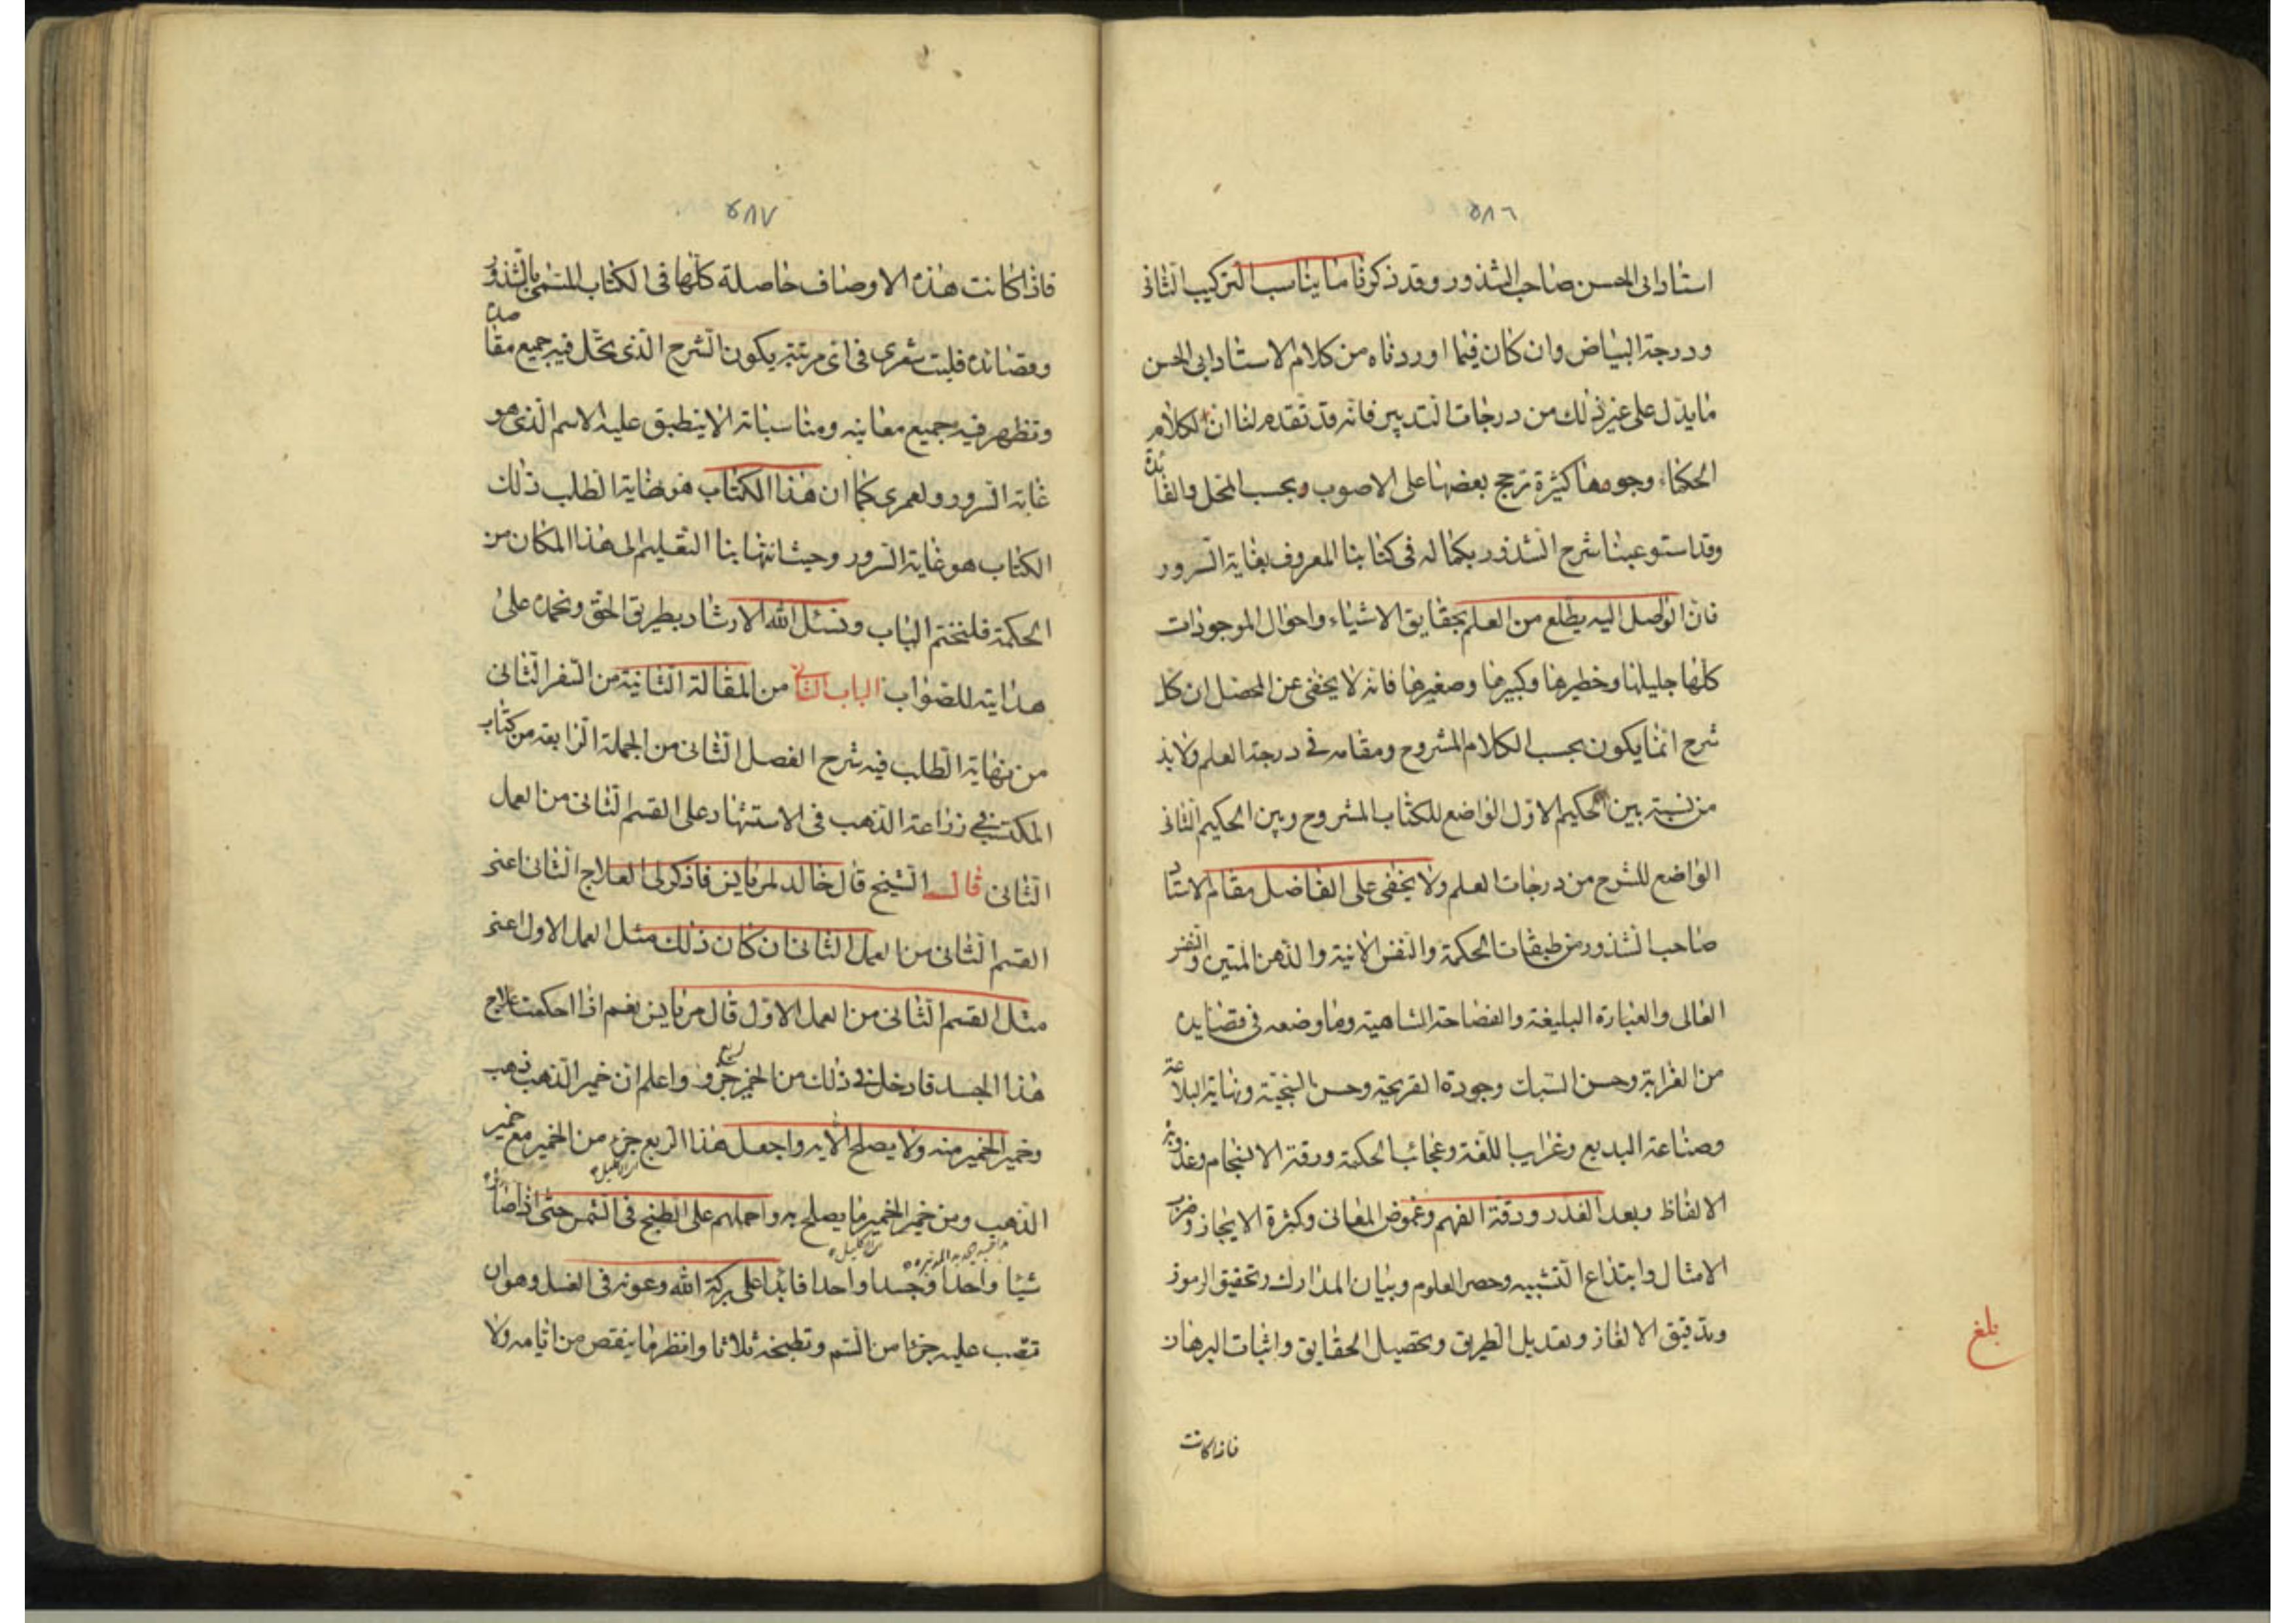 ٥٨٦
استاد ابى الحسن صاحب الشذور وقد ذكرنا ما يناسب التركيب الثانى
ودرجة البياض وان كان فيما اوردناه من كلام الاستاد ابى الحسن
ما يدل على غير ذلك من درجات التدبير فانه قد تقدم لنا ان لكلام
الحكماء وجوها كثيرة ترجح بعضها على الاصوب وبحسب المحل والفائدة
وقد استوعبنا شرح الشذور بكماله فى كتابنا المعروف بغاية السرور
فان الواصل اليه يطلع من العلم بحقايق الاشياء واحوال الموجودات
كلها جليلها وخطيرها وكبيرها وصغيرها فانه لا يخفى عن المحصل ان كل
شرح انما يكون بحسب الكلام المشروح ومقامه فى درجة العلم ولا بد
من نسبة بين الحكيم الاول الواضع للكتاب المشروح وبين الحكيم الثانى
الواضع للشرح من درجات العلم ولا يخفى على الفاضل مقام الاستاد
صاحب الشذور من طبقات الحكمة والنفس الانية والذهن المتين والنفس
العالى والعبارة البليغة والفصاحة الشاهية وما وضعه فى قصايده
من الغرابة وحسن السبك وجودة القريحة وحسن النتيجة ونهاية البلاغة
وصناعة البديع وغرايب اللغة وعجائب الحكمة ورقة الانسجام وعذوبة
الالفاظ وبعد الغدر ودقة الفهم وغموض المعانى وكثرة الايجاز وضرب
الامثال وابتداع التشبيه وحصر العلوم وبيان المدارك وتحقيق الرموز
وتدقيق الالغاز وتعديل الطريق وتحصيل الحقايق واثبات البرهان
بلغ
فاذا كانت
٥٨٧
فاذا كانت هذه الاوصاف حاصلة كلها فى الكتاب المسمى بالشذور
وقصائده فليت شعرى فى اى مرتبة يكون الشرح الذى يحل فيه جميع مقاصده
وتظهر فيه جميع معانيه ومناسباته الا ينطبق عليه الاسم الذى هو
غاية السرور ولعمرى كما ان هذا الكتاب هو نهاية الطلب ذلك
الكتاب هو غاية السرور وحيث انتهابنا التعليم الى هذا المكان من
الحكمة فلنختم الباب ونسئل الله الارشاد بطريق الحق ونحمده على
هدايته للصواب الباب الثانى من المقالة الثانية من السفر الثانى
من نهاية الطلب فيه شرح الفصل الثانى من الجملة الرابعه من كتاب
المكتسب فى زراعة الذهب فى الاستشهاد على القسم الثانى من العمل
الثانى قال الشيخ قال خالد لمريانس فاذكر لى العلاج الثانى اعنى
القسم الثانى من العمل الثانى ان كان ذلك مثل العمل الاول اعنى
مثل القسم الثانى من العمل الاول قال مريانس نعم اذا احكمت علاج
هذا الجسد فادخل فى ذلك من الخمير ربع جزو واعلم ان خمير الذهب ذهب
وخمير الخمير منه ولا يصلح الا به واجعل هذا الربع جزء من الخمير مع خمير
الذهب ومن خمير الخمير ما يصلح به واحملهم على الطبخ فى الشمس حتى اذا صار
شيئا واحدا وجسدا واحدا فابدا على بركة الله وعونه فى الغسل وهو ان
تصب عليه جزئا من السم وتطبخه ثلاثا وانظر ما ينقص من ايامه ولا